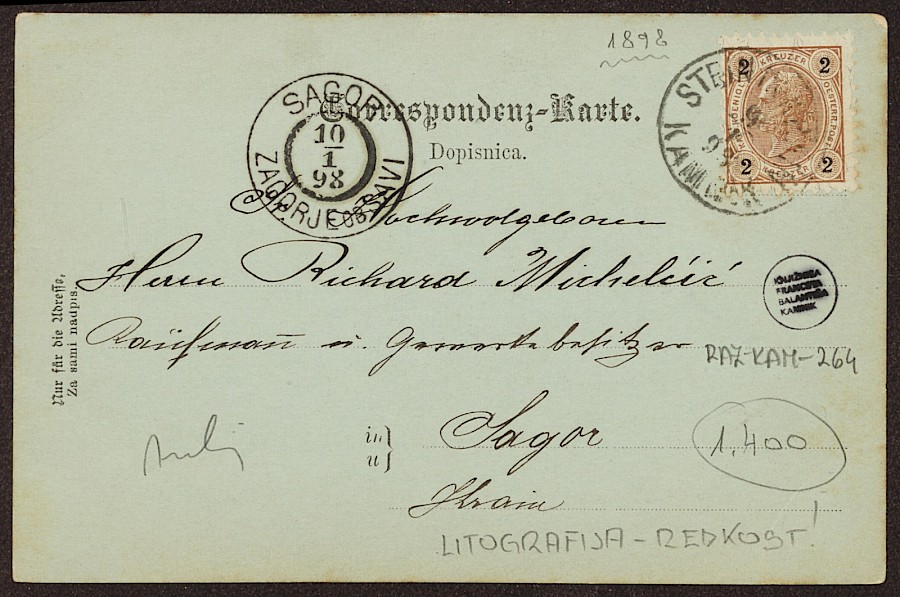 1898
Correspondenz-Karte.
Dopisnica.
SAGOR
10
1
98
ZAGORJE OB SAVI
STEIN
KAMNIK
2 KREUZER 2
2 KREUZER 2
Sr. Hochwolgeboren
Herrn Richard Michelčič
Kaufmann u. Gewerkebesitzer
KNJIŽNICA
FRANCETA
BALANTIČA
KAMNIK
RAZ-KAM-264
Nur für die Adresse.
Za sami nadpis.
in
u
Sagor
1.400
Krain
LITOGRAFIJA - REDKOST!